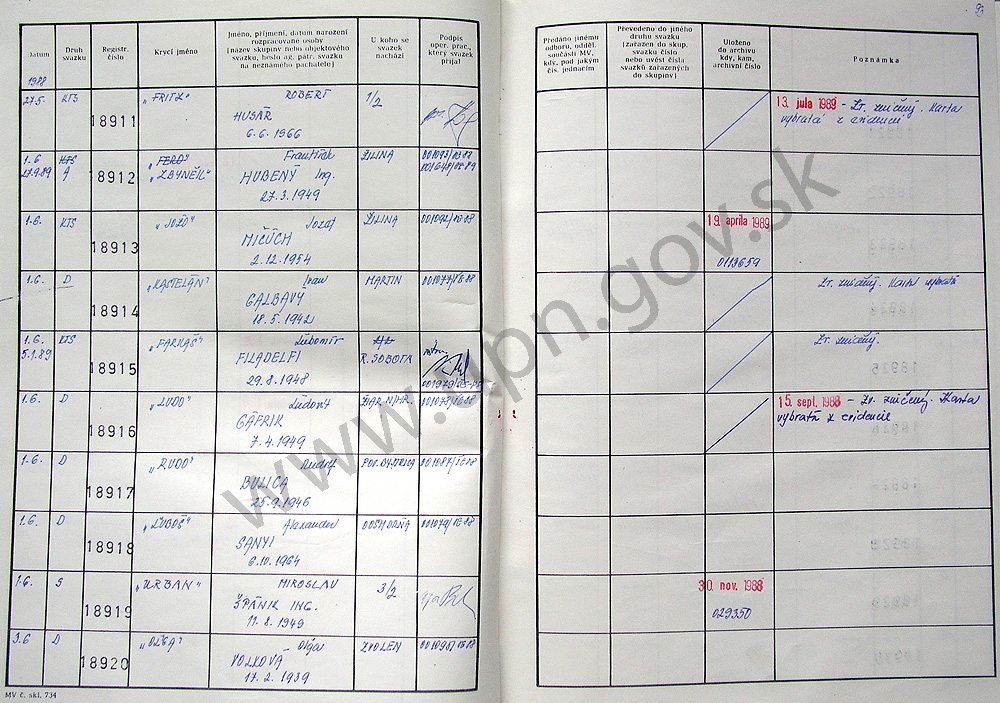 93
Datum
Druh svazku
Registr. číslo
Krycí jméno
Jméno, příjmení, datum narození
rozpracované osoby
(název skupiny nebo objektového
svazku, heslo ag. pátr. svazku
na neznámého pachatele)
U koho se
svazek
nachází
Podpis
oper. prac.,
který svazek
přijal
Předáno jinému
odboru, odděl.
součásti MV,
kdy, pod jakým
čís. jednacím
Převedeno do jiného
druhu svazku
(zařazen do skup.
svazku číslo
nebo uvést čísla
svazků zařazených
do skupiny)
Uloženo
do archivu
kdy, kam,
archivní číslo
Poznámka
1988
27.5. KTS 18911 „FRITZ“ ROBERT 1/2
HUSÁR
6.6.1966
13. júla 1989 - Zv. zničený. Karta
vybratá z evidencie
1.6. KTS 18912 „FERO“ František ŽILINA
27.9.89 A „ZBYNĚK“ HUBENÝ Ing.
27.3.1949
1.6. KTS 18913 „JOŽO“ Jozef ŽILINA
MIČÚCH
2.12.1954
19. apríla 1989
0113659
1.6. D 18914 „KASTELÁN“ Ivan MARTIN
GALBAVÝ
18.5.1942
Zv. zničený. Karta vybratá
1.6. KTS 18915 „FARKAŠ“ Ľubomír
5.1.89 FILADELFI R. SOBOTA
29.8.1948
Zv. zničený.
1.6. D 18916 „LUDO“ Ľudovít ŽIAR N/HR.
GÁFRIK
7.4.1949
15. sept. 1988 - Zv. zničený. Karta
vybratá z evidencie
1.6. D 18917 „RUDO“ Rudolf POV. BYSTRICA
BULICA
25.9.1946
1.6. D 18918 „ĽUBOŠ“ Alexander
SANYI
6.10.1964
1.6. S 18919 „URBAN“ MIROSLAV 3/2
ŠPÁNIK ING.
11.8.1949
30. nov. 1988
029350
3.6 D 18920 „OĽGA“ Oľga ZVOLEN
VOLKOVÁ
17.2.1939
MV č. skl. 734
www.upn.gov.sk